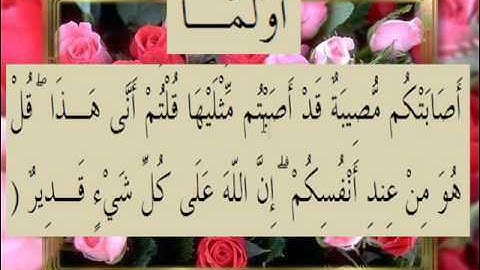 أولمّـــا
أَصَابَتْكُم مُّصِيبَةٌ قَدْ أَصَبْتُم مِّثْلَيْهَا قُلْتُمْ أَنَّى هَـــذَا ۖ قُلْ
هُوَ مِنْ عِندِ أَنْفُسِكُمْ ۗ إِنَّ اللّهَ عَلَى كُلِّ شَيْءٍ قَـــدِيرٌ (